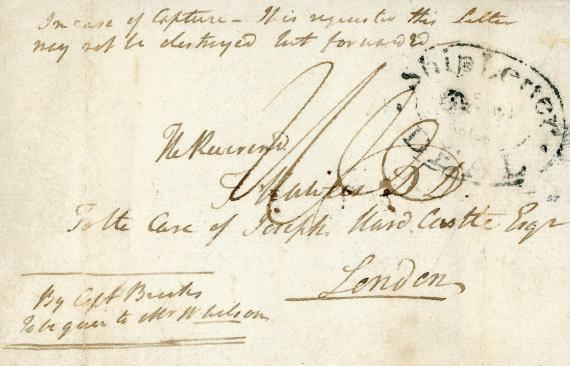 In case of Capture - It is requested this Letter
may not be destroyed but forwarded
Ship Letter
DEAL
The Reverend
D.D.
To the Care of Joseph Hard Castle Esqr
London
By Capt Brooks
to Mr Wilson